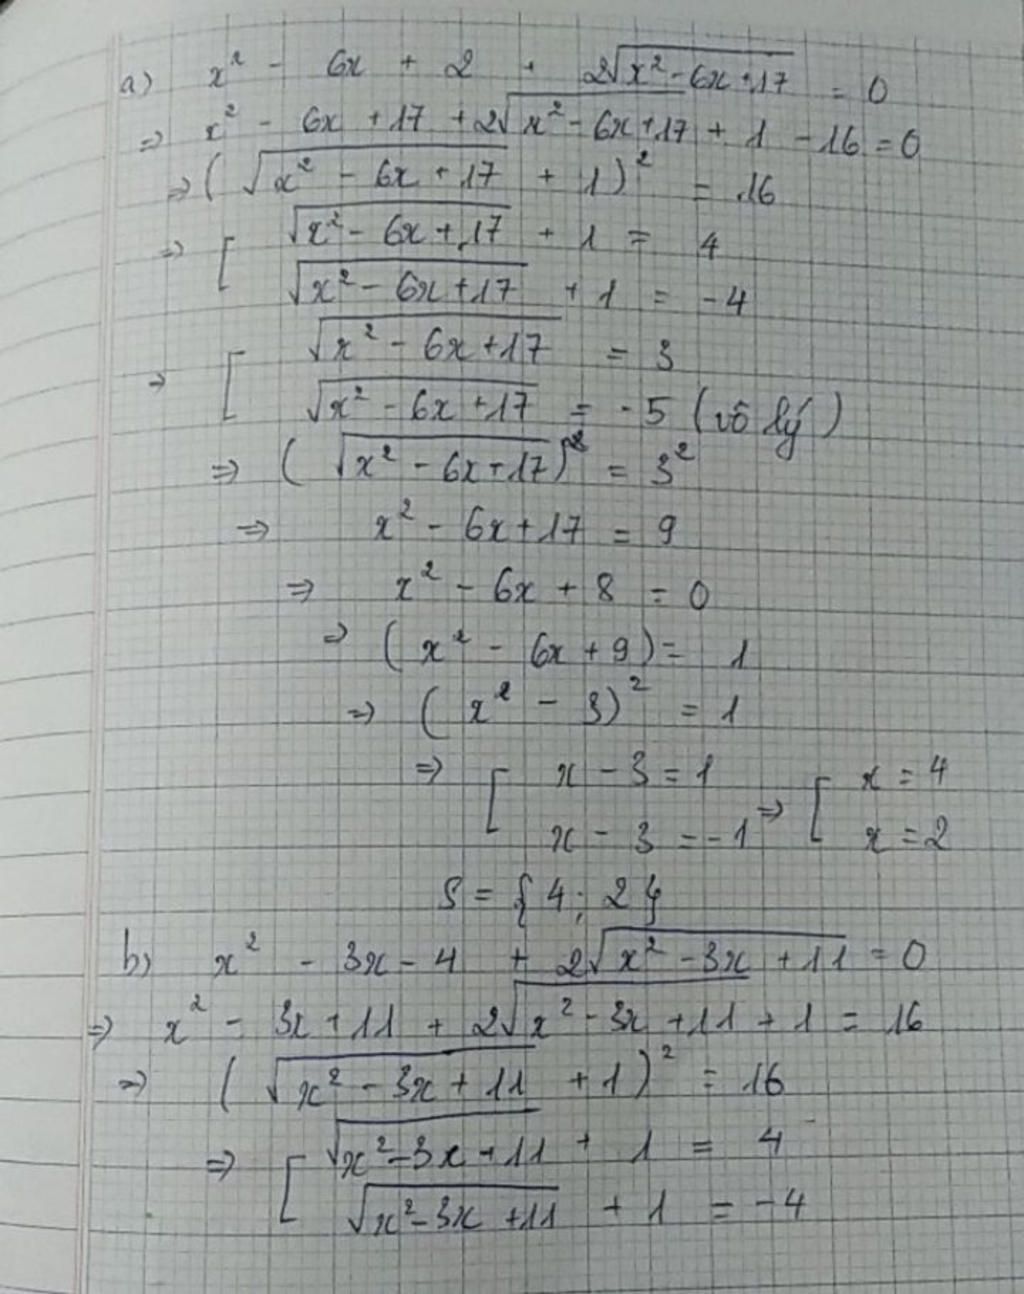 a) x² - 6x + 2 + 2√(x² - 6x + 17) = 0
=> x² - 6x + 17 + 2√(x² - 6x + 17) + 1 - 16 = 0
=> (√(x² - 6x + 17) + 1)² = 16
=> [ √(x² - 6x + 17) + 1 = 4
√(x² - 6x + 17) + 1 = -4
=> [ √(x² - 6x + 17) = 3
√(x² - 6x + 17) = -5 (vô lý)
=> (√(x² - 6x + 17))² = 3²
=> x² - 6x + 17 = 9
=> x² - 6x + 8 = 0
=> (x² - 6x + 9) = 1
=> (x² - 3)² = 1
=> [ x - 3 = 1 => [ x = 4
x - 3 = -1 x = 2
S = {4; 2}
b) x² - 3x - 4 + 2√(x² - 3x + 11) = 0
=> x² - 3x + 11 + 2√(x² - 3x + 11) + 1 = 16
=> (√(x² - 3x + 11) + 1)² = 16
=> [ √(x² - 3x + 11) + 1 = 4
√(x² - 3x + 11) + 1 = -4